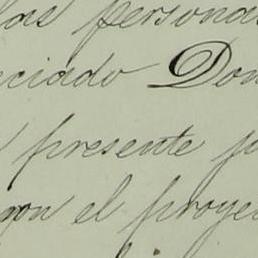 las persona
eciado Don
presente p
con el proye